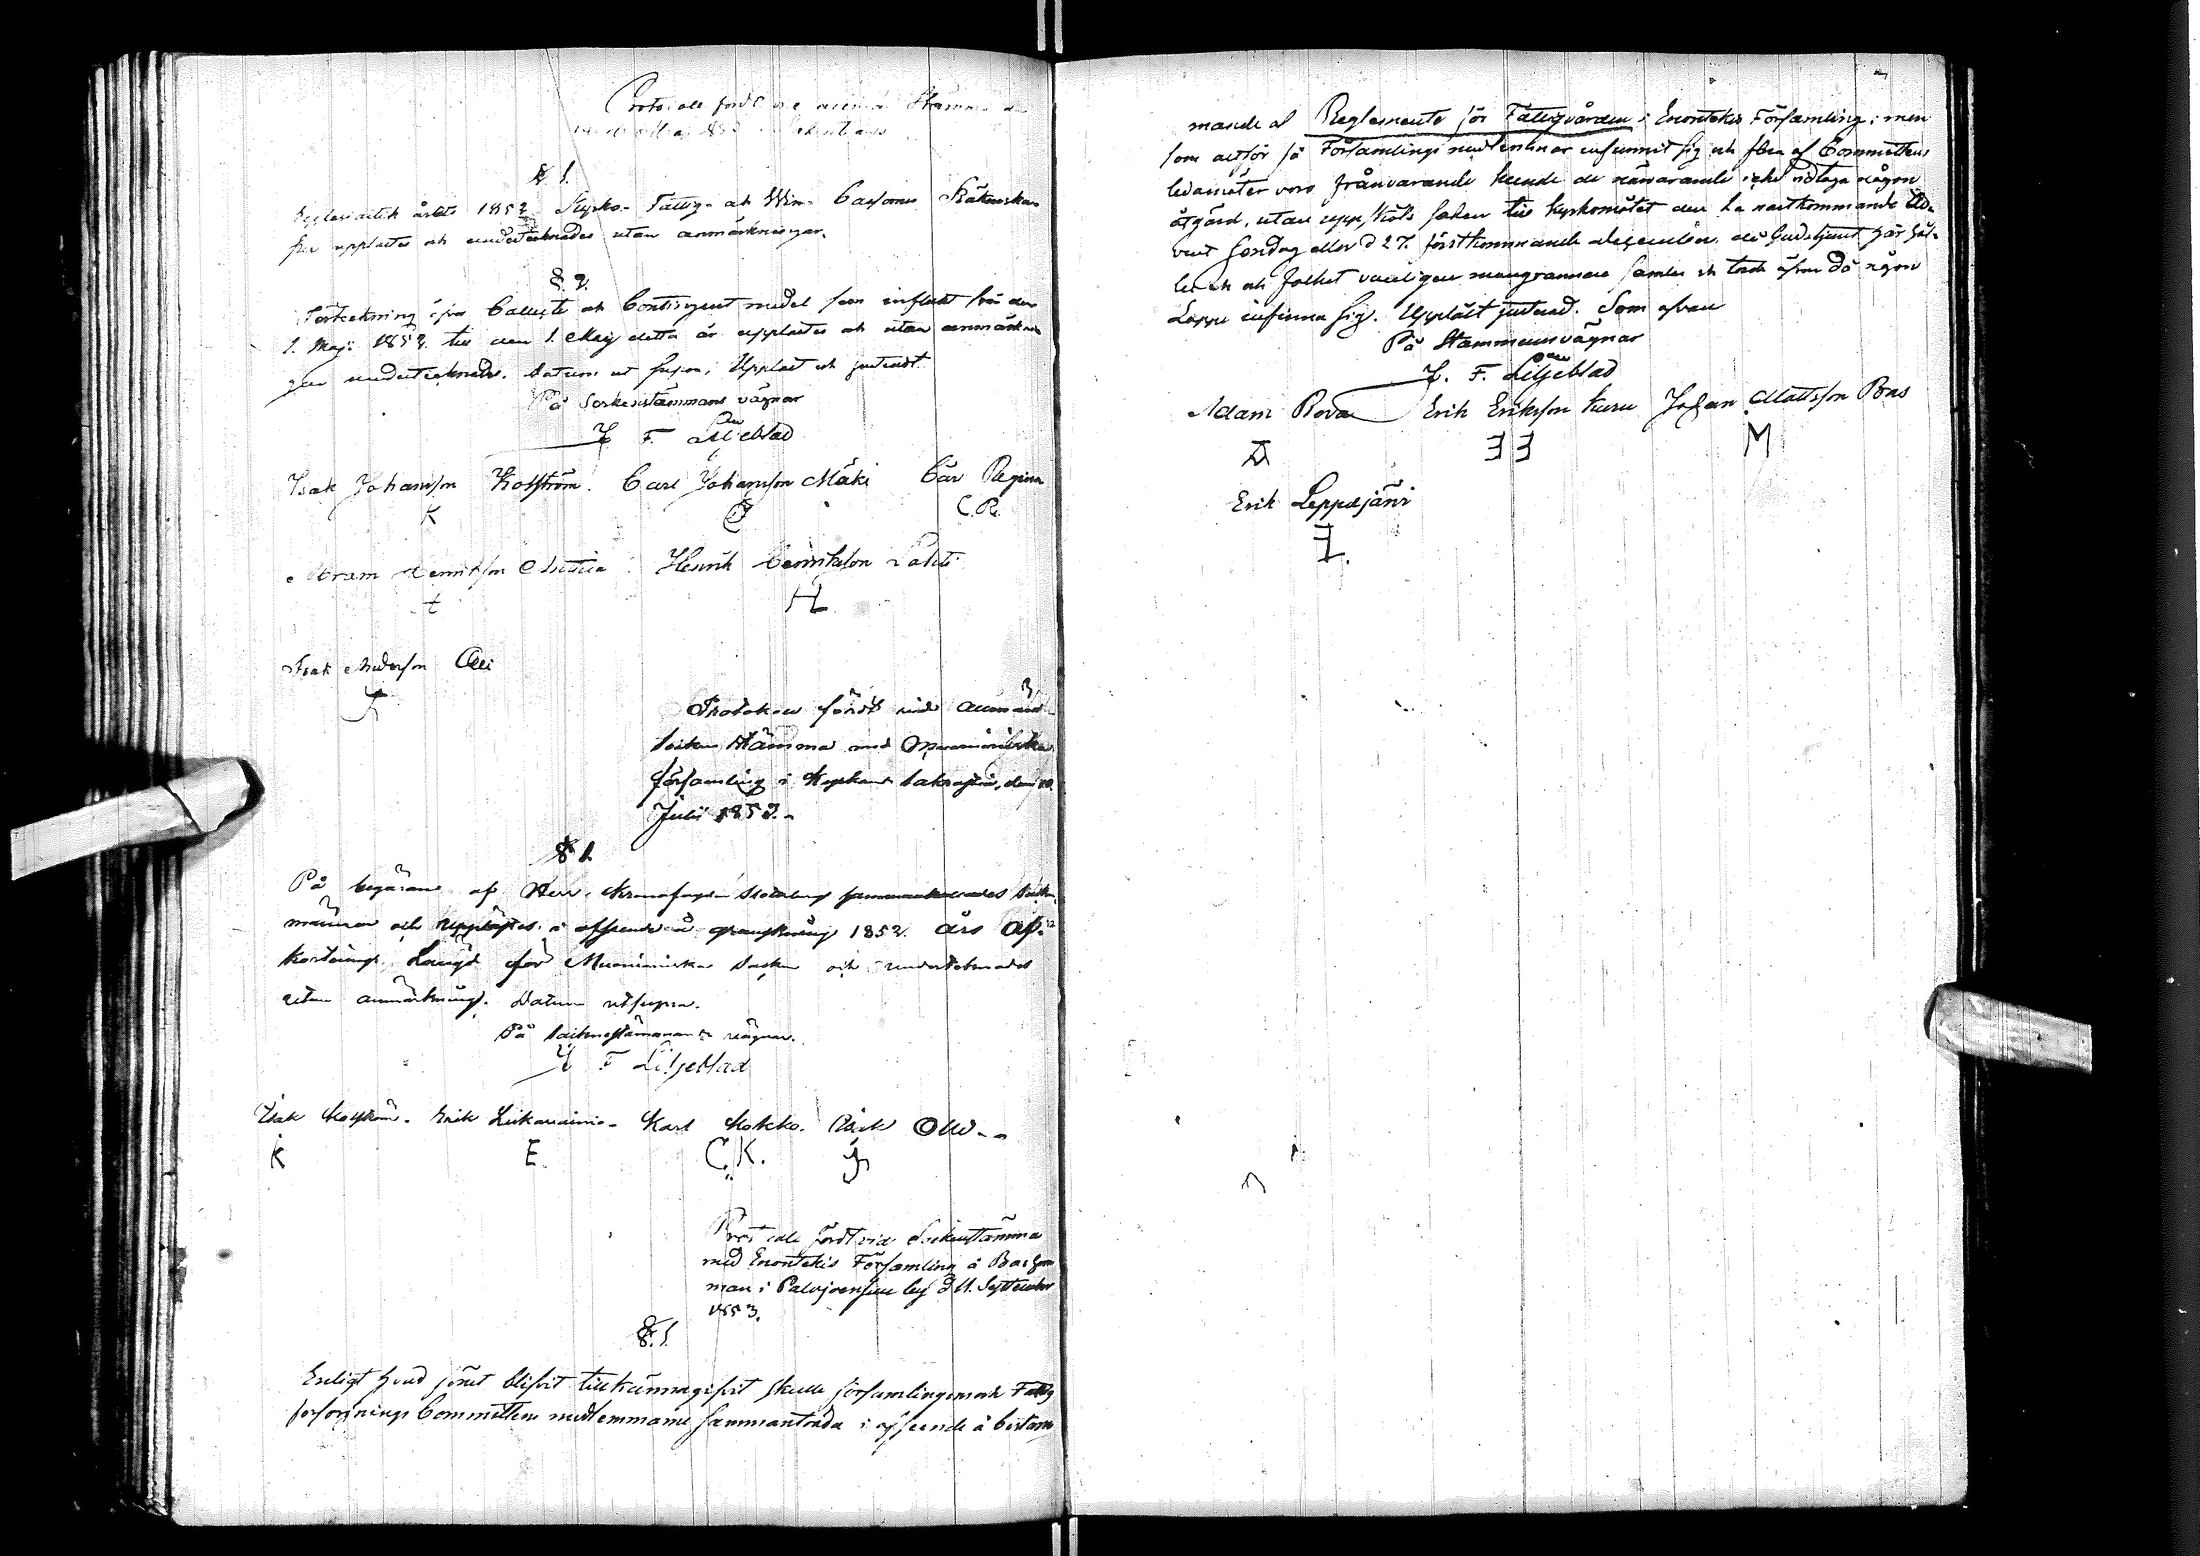 Protocoll fördt vid allmän Stämma
§ 1.
Ecclesiastik årets 1852 Kyrko- Fattig- och Win- Cassornes Räkenska-
per upplästes och undertecknades utan anmärkningar.
§. 2.
Förteckning öfver Collect och Contingent medel som influtit från den
1. Maji 1852 till den 1. Maij detta år upplästes och utan anmärknin
gar undertecknades. Datum ut supra; Uppläst och justeradt.
På Sockenstämmans vägnar
J. F. Liljeblad
Isak Johansson Kolström. Carl Johansson Mäki Car Regina
K C C. R.
Abram Henriksson Henrik Henriksson Lahti
t H L
Isak Andersson Olli
J
3,
Protokoll fördt vid allmän
Socken Stämma med Muonioniska
församling i Kyrkans Sakristia, den 10
Julii 1853.-
§ 1.
På begäran af Herr Kronofogden sammankallades Sockne
männen och Upplästes i afseende å granskning 1852 års Af-
kortnings Längd för Muonioniska Socken och undertecknades
utan anmärkning. Datum utsupra.
På Sockenstämmans vägnar.
J F Liljeblad
Isak Kolström. Erik Liikavainio. Karl Kokko. Isak Olli.-
K E. C. K. J
Protocoll fördt vid Sockenstämma
med Enontekis Församling å
man i Palojoensuu by d 11. September
1853.
§. 1.
Enligt hvad förut blifvit tillkännagifvit skulle församlingen och Fattig
försörjnings Committeens medlemmarne sammanträda i afseende å bestäm-
mande af Reglemente för Fattigvården i Enontekis Församling; men
som allför få Församlings medlemmar infunnit sig och flere af Committeens
ledamöter voro frånvarande kunde de närvarande icke vidtaga någon
åtgärd, utan uppsköts saken till Kyrkomötet den 1a nästkommande Ad-
vent Söndag eller d 27. förstkommande då Gudstjenst här hål-
les och folket vanligen mangrannare samlas och torde äfven då någon
Lappe infinna sig. Uppläst justerad. Som ofvan
På Stämmans vägnar
J. F. Liljeblad
Adam Rova Erik Eriksson Kuru Johan Mattsson Pons
A E E M
Erik Leppäjärvi
E L.